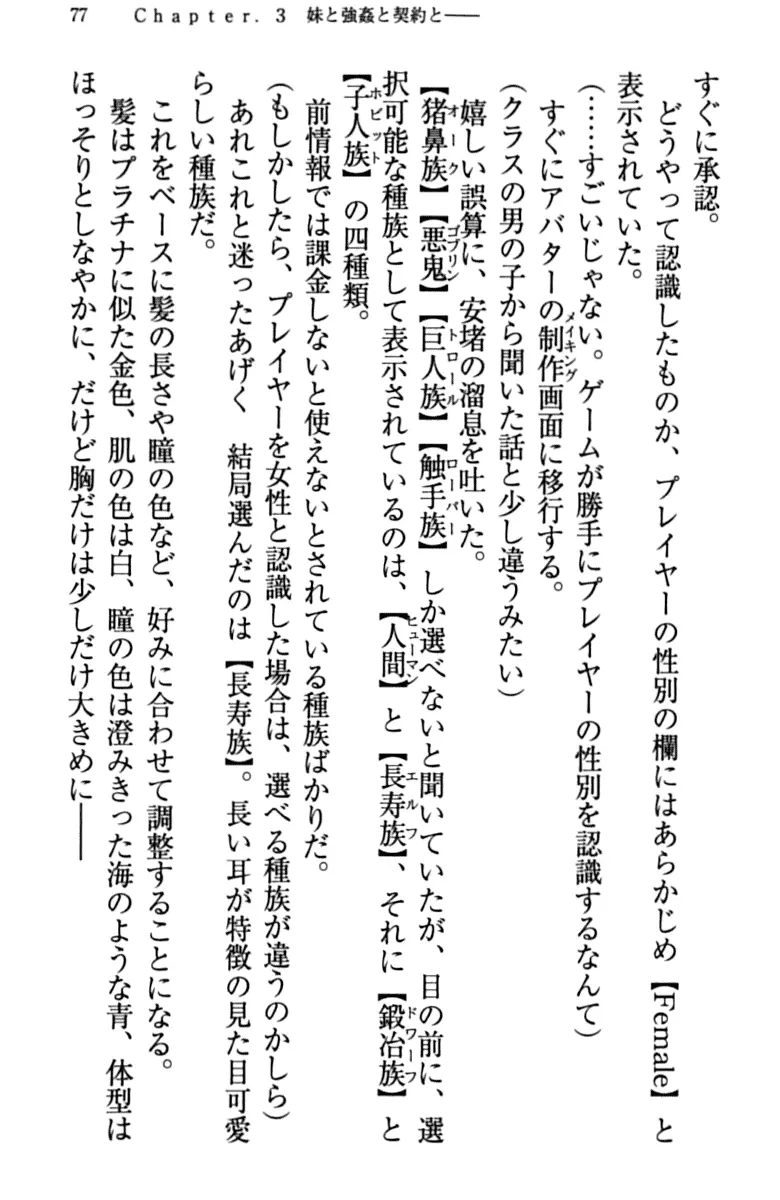 77　Chapter. 3　妹と強姦と契約と――
すぐに承認。
　どうやって認識したものか、プレイヤーの性別の欄にはあらかじめ【Female】と
表示されていた。
（……すごいじゃない。ゲームが勝手にプレイヤーの性別を認識するなんて）
　すぐにアバターの制作画面に移行する。
メイキング
（クラスの男の子から聞いた話と少し違うみたい）
　嬉しい誤算に、安堵の溜息を吐いた。
【猪鼻族】【悪鬼】【巨人族】【触手族】しか選べないと聞いていたが、目の前に、選
オーク　ゴブリン　トロール　ローパー
択可能な種族として表示されているのは、【人間】と【長寿族】、それに【鍛冶族】と
ヒューマン　エルフ　ドワーフ
【子人族】の四種類。
ホビット
　前情報では課金しないと使えないとされている種族ばかりだ。
（もしかしたら、プレイヤーを女性と認識した場合は、選べる種族が違うのかしら）
　あれこれと迷ったあげく　結局選んだのは【長寿族】。長い耳が特徴の見た目可愛
らしい種族だ。
　これをベースに髪の長さや瞳の色など、好みに合わせて調整することになる。
　髪はプラチナに似た金色、肌の色は白、瞳の色は澄みきった海のような青、体型は
ほっそりとしなやかに、だけど胸だけは少しだけ大きめに――